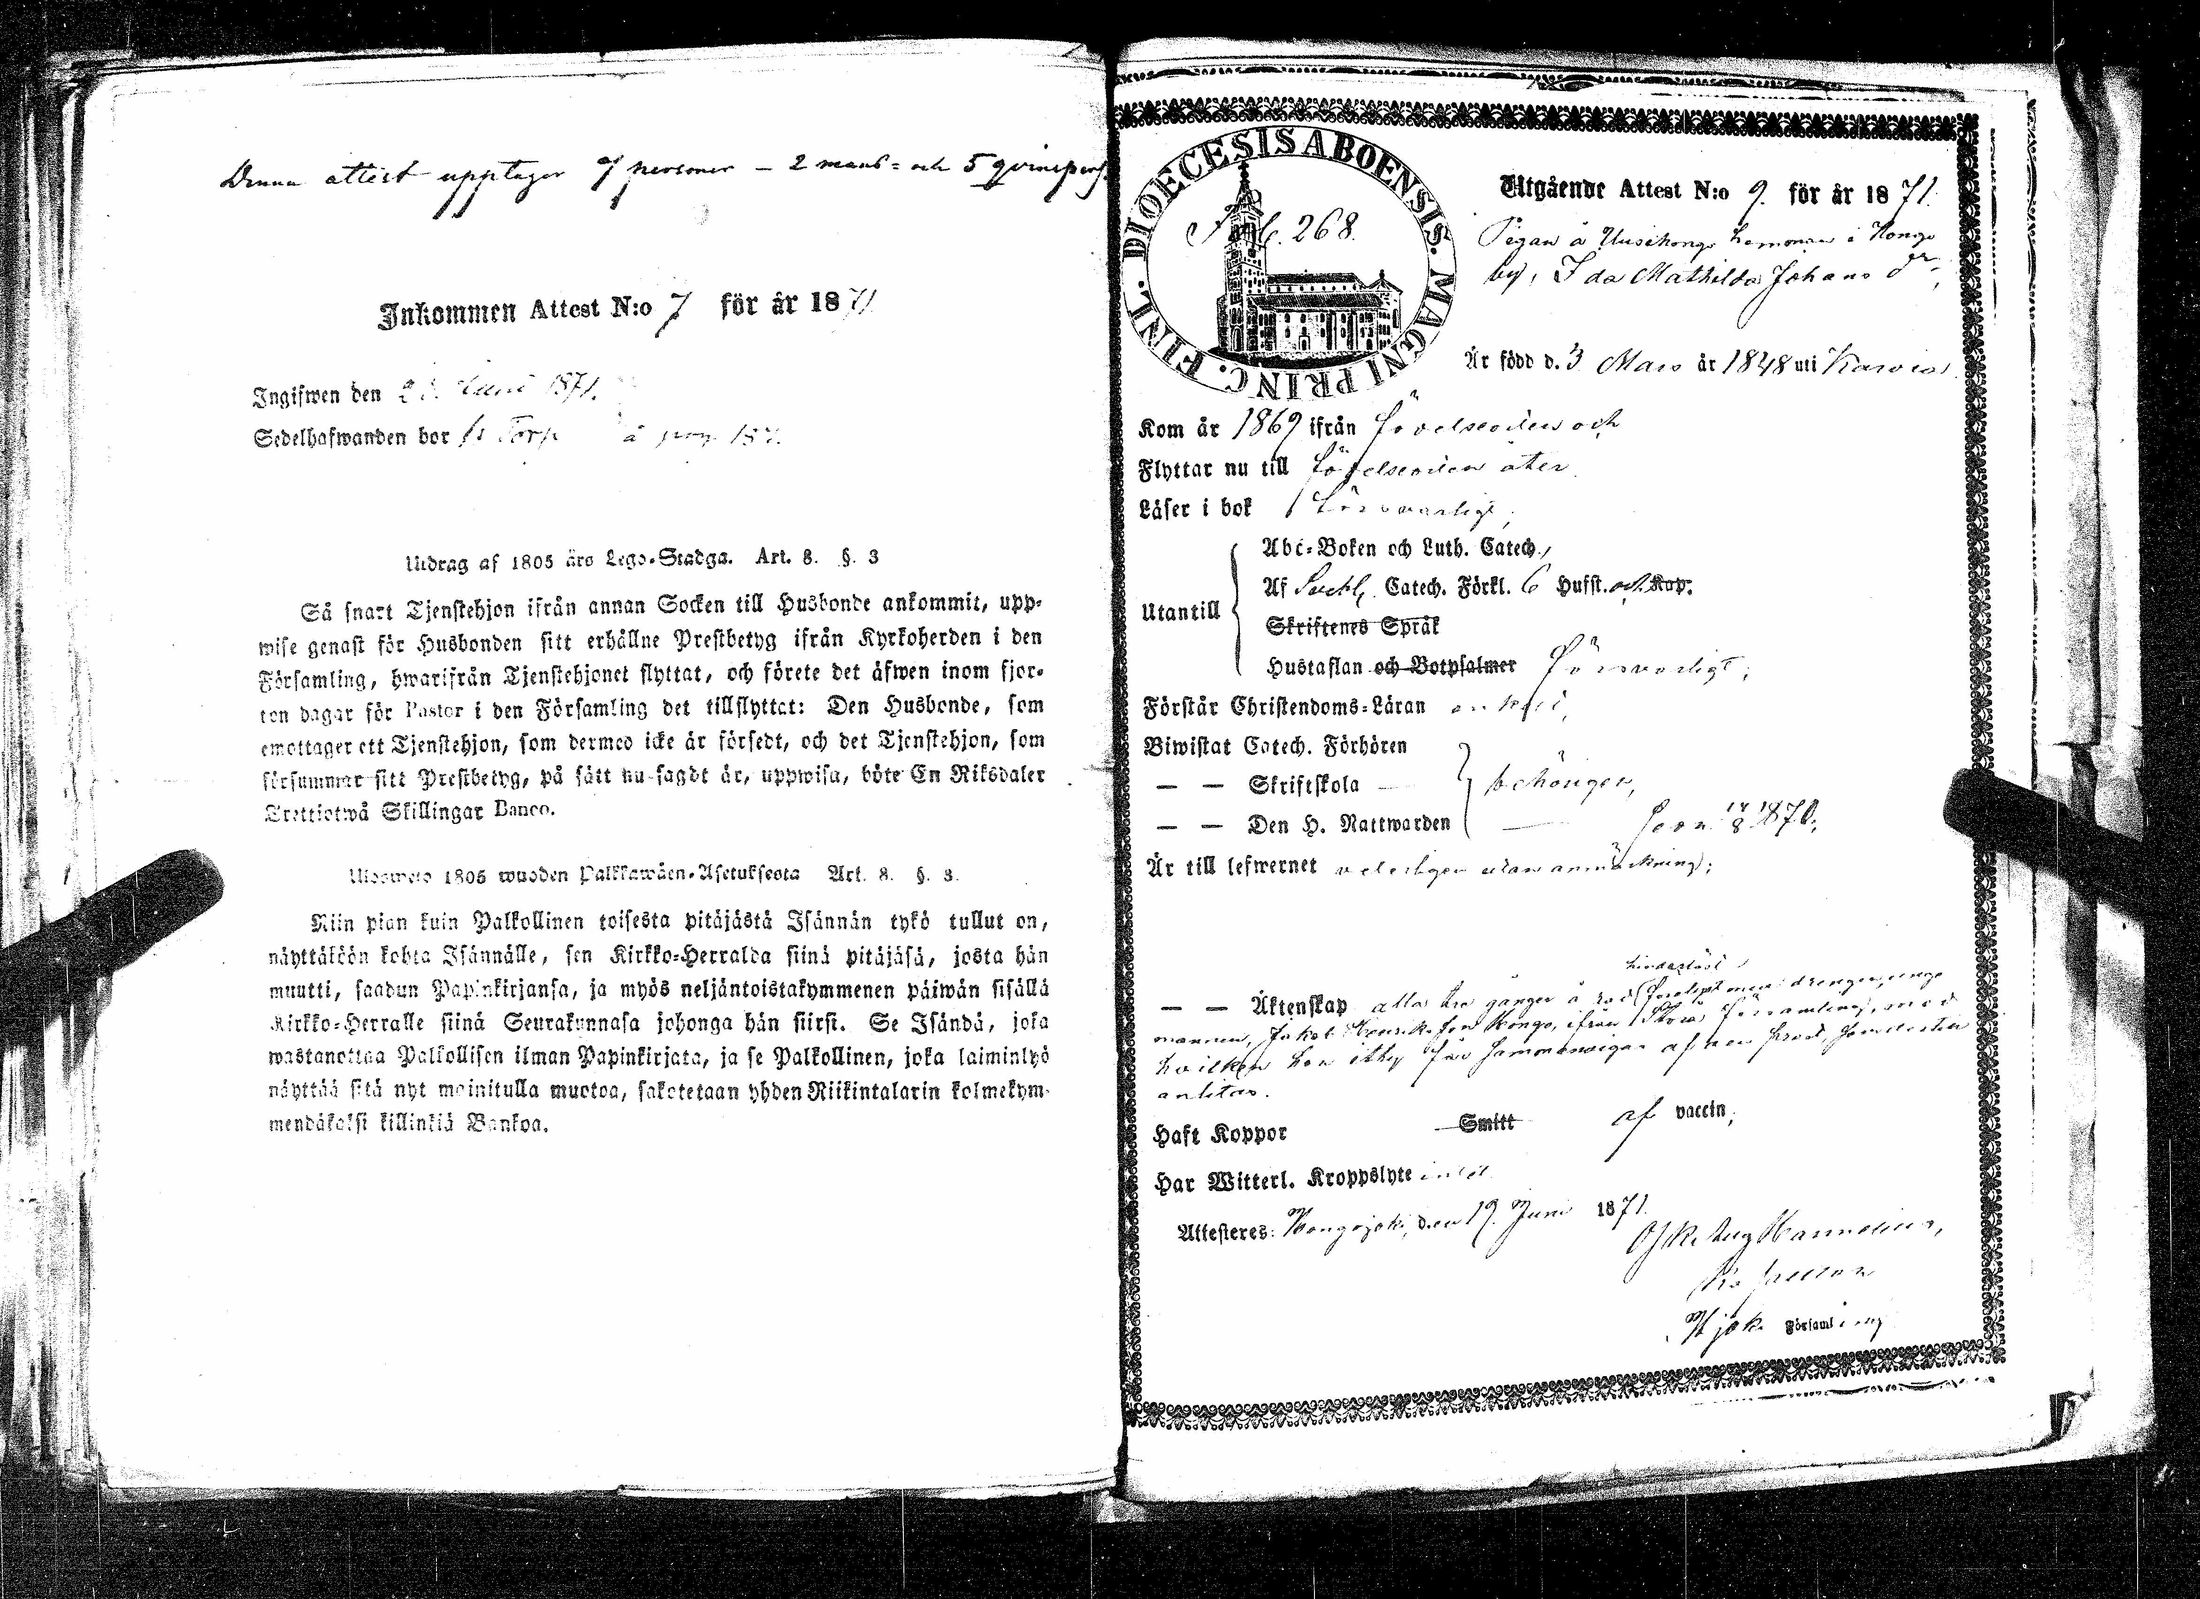 Denna attest upptager 7 personer – 2 mans= och 5 qvinspers.
Inkommen Attest N:o 7 för år 1871
Ingifwen den Juni 1871.
Sedelhafwanden bor Torp å pag 187.
Utdrag af 1805 års Lego-Stadga. Art. 8. §. 3
Så snart Tjenstehjon ifrån annan Socken till Husbonde ankommit, upp-
wise genast för Husbonden sitt erhållne Prestbetyg ifrån Kyrkoherden i den
Församling, hwarifrån Tjenstehjonet flyttat, och förete det äfwen inom fjor-
ton dagar för Pastor i den Församling det tillflyttat: Den Husbonde, som
emottager ett Tjenstehjon, som dermed icke är försedt, och det Tjenstehjon, som
försummar sitt Prestbetyg, på sätt nu sagdt är, uppwisa, böte En Riksdaler
Trettiotwå Skillingar Banco.
Ulosweto 1805 wuoden Palkkawäen-Asetuksesta Art. 8. §. 3.
Niin pian kuin Palkollinen toisesta pitäjästä Isännän tykö tullut on,
näyttäköön kohta Isännälle, sen Kirkko=Herralda siinä pitäjäsä, josta hän
muutti, saadun Papinkirjansa, ja myös neljäntoistakymmenen päiwän sisällä
Kirkko=Herralle siinä Seurakunnasa johonga hän siirsi. Se Isändä, joka
wastanottaa Palkollisen ilman Papinkirjata, ja se Palkollinen, joka laiminlyö
näyttää sitä nyt mainitulla muotoa, sakotetaan yhden Riikintalarin kolmekym-
mendäkaksi killinkiä Bankoa.
DIOECESIS ABOENSIS. MAGNI PRINC. FINL.
268.
Utgående Attest N:o 9. för år 1871.
Pigan å Uusihongo hemman i Hongo
by, Ida Mathilda Johans dr,
Är född d. 3 Mars år 1848 uti Karvia
Kom år 1869 ifrån födelseorten och
Flyttar nu till födelseorten åter.
Läser i bok försvarligt,
Abc=Boken och Luth. Catech,
Af Svebil. Catech. Förkl. 6 Hufst. och Kap.
Utantill
Skriftenes Språk
Hustaflan och Botpsalmer försvarligt;
Förstår Christendoms=Läran enkelt,
Biwistat Catech. Förhören
— — Skriftskola behörigen,
— — Den H. Nattwarden 14/8 1870;
Är till lefwernet veterligen utan anmärkning;
hinderlöst
— — Äktenskap alla tre gånger å rad med drengen, unge
mannen, Jakob Henriksson Hongo, ifrån Storå församling, med
hvilken hon
Haft Koppor Smitt af vaccin,
Har Witterl. Kroppslyte intet
Attesteres: Hongojoki, den 19. Juni 1871.
Kapellan
Hjoki Församling